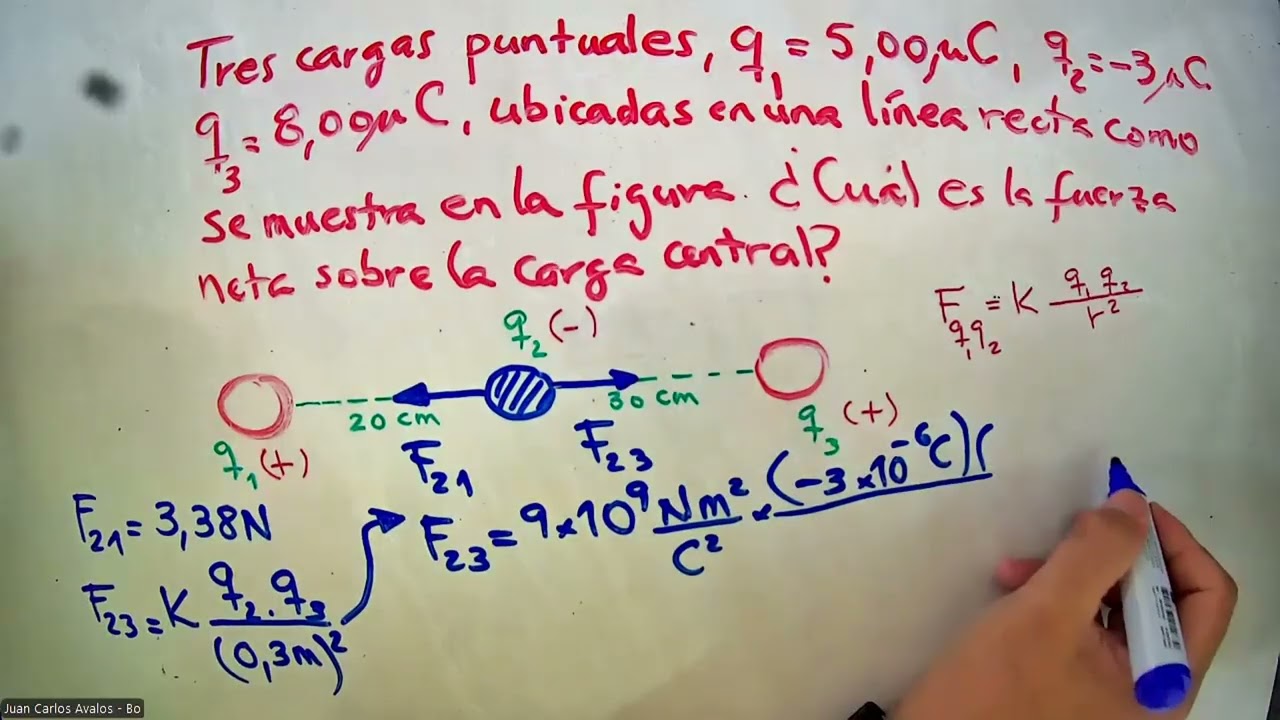 Tres cargas puntuales, q₁ = 5,00μC, q₂ = -3μC
q₃ = 8,00μC, ubicadas en una línea recta como
se muestra en la figura. ¿Cuál es la fuerza
neta sobre la carga central?
F_q₁q₂ = K q₁ q₂ / r²
q₂ (-)
20 cm
30 cm
q₁ (+)
F₂₁
F₂₃
q₃ (+)
F₂₁ = 3,38N
F₂₃ = 9×10⁹ Nm²/C² × (-3×10⁻⁶C)(
F₂₃ = K q₂.q₃ / (0,3m)²
Juan Carlos Avalos - Bo